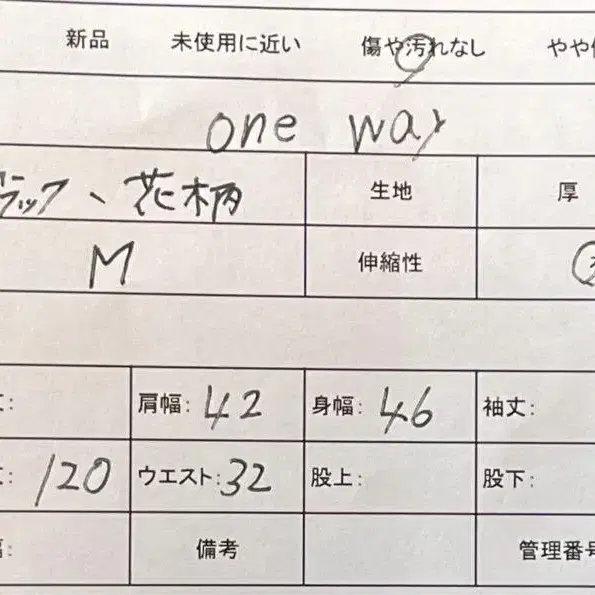 新品 未使用に近い 傷や汚れなし やや
one way
ラック、花柄 生地 厚
M 伸縮性
肩幅: 42 身幅: 46 袖丈:
120 ウエスト: 32 股上: 股下:
備考 管理番号